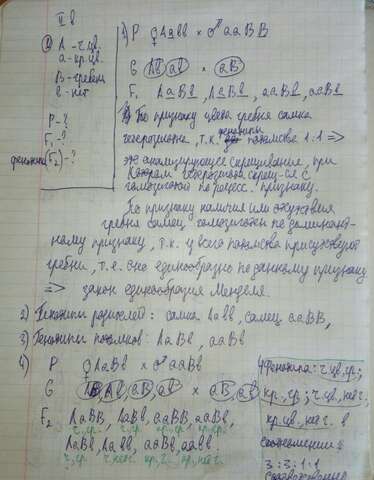 II в
① А - ч.цв.
а - кр.цв.
В - гребень
в - нет
Р - ?
F₁ - ?
фенотипы (F₂) - ?
1) Р ♀ Аавв × ♂ ааВВ
G Ав ав × аВ
F₁ АаВв, АаВв, ааВв, ааВв
По признаку цвета гребня самка
гетерозиготна, т.к. фенотипы потомства 1:1 =>
это анализирующее скрещивание, при
котором гетерозигота скрещ-ся с
гомозиготой по рецесс. признаку.
По признаку наличия или отсутствия
гребня самец гомозиготен по доминант-
ному признаку, т.к. у всего потомства присутствует
гребни, т.е. оно единообразно по данному признаку
=> закон единообразия Менделя.
2) Генотипы родителей: самка Аавв, самец ааВВ,
3) Генотипы потомков: АаВв, ааВв
4) Р ♀ АаВв × ♂ ааВв
G АВ, Ав, аВ, ав × аВ, ав
F₂ АаВВ, АаВв, ааВВ, ааВв,
ч.гр. ч.гр. кр.гр. кр.гр.
АаВв, Аавв, ааВв, аавв
ч.гр. ч.нет. кр.гр. кр.нет г.
4 фенотипа: ч.цв,гр.;
кр.,гр.; ч.цв, нет г.;
кр.цв, нет г. в
соотношении:
3:3:1:1
соответственно